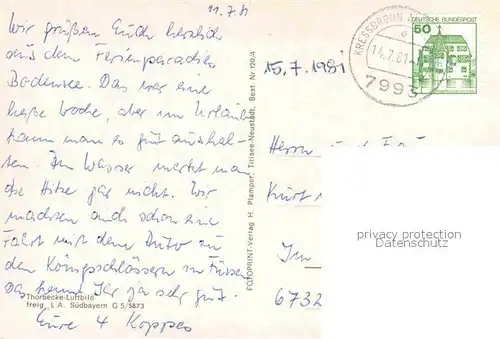 11.7.81
Wir grüßen Euch herzlich
aus dem Ferienparadies
Bodensee. Das war eine
heiße Woche, aber im Urlaub
kann man es gut aushal-
ten. Im Wasser merkt man
die Hitze gar nicht. Wir
machten auch schon eine
Fahrt mit dem Auto zu
den Königschlössern in Füssen
Das kennt Ihr ja sehr gut.
Eure 4 Koppes
Thorbecke-Luftbild
freig. L.A. Südbayern G 5/5873
FOTOPRINT-Verlag H. Plamper, Titisee-Neustadt, Best. Nr 120/4
15.7.1981
KRESSBRONN
14.7.81
7993
DEUTSCHE BUNDESPOST
50
Herrn
Kurt
Im
6732
privacy protection
Datenschutz